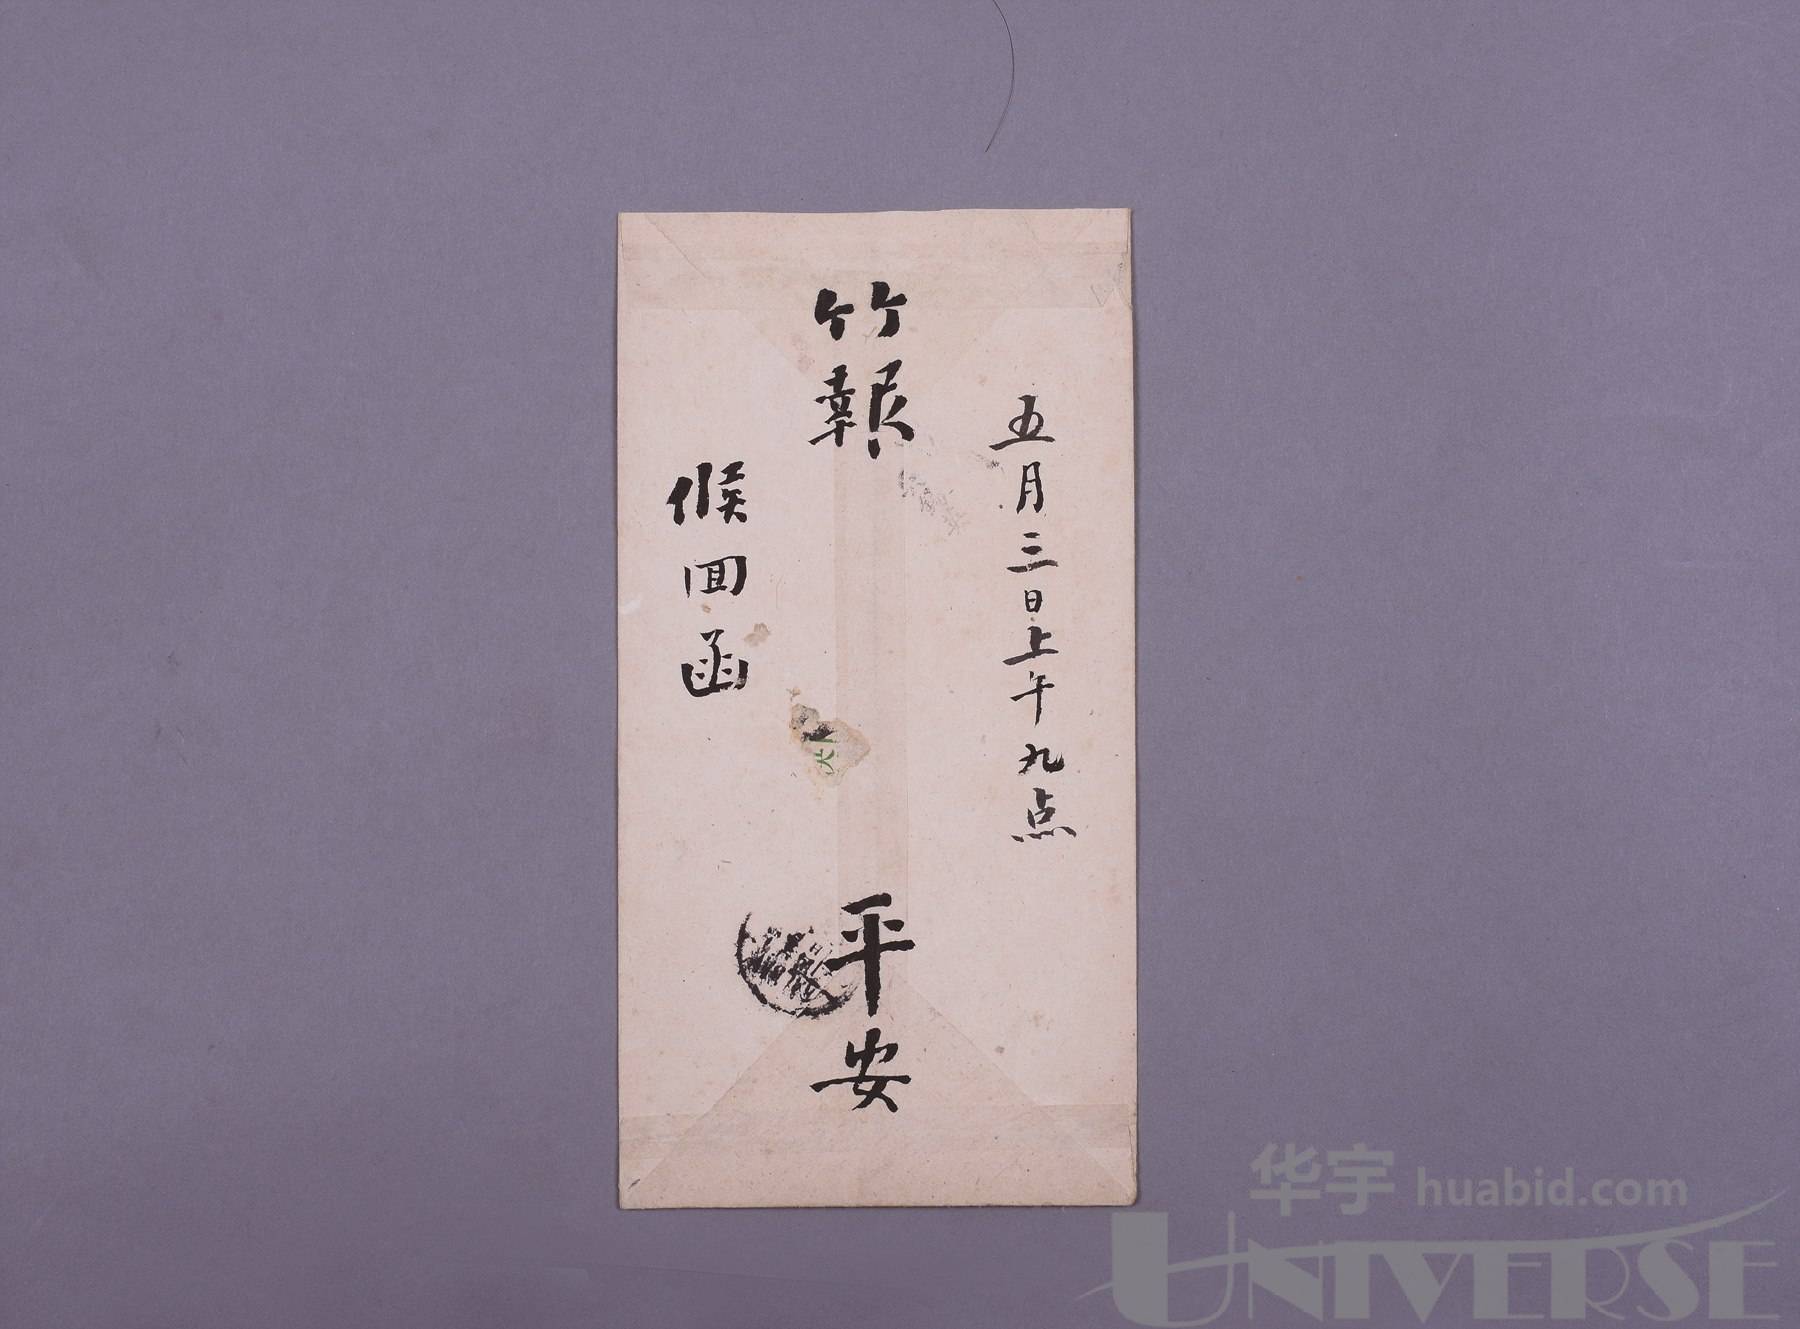 五月三日上午九点
竹報 平安
候回函
华宇 huabid.com
UNIVERSE